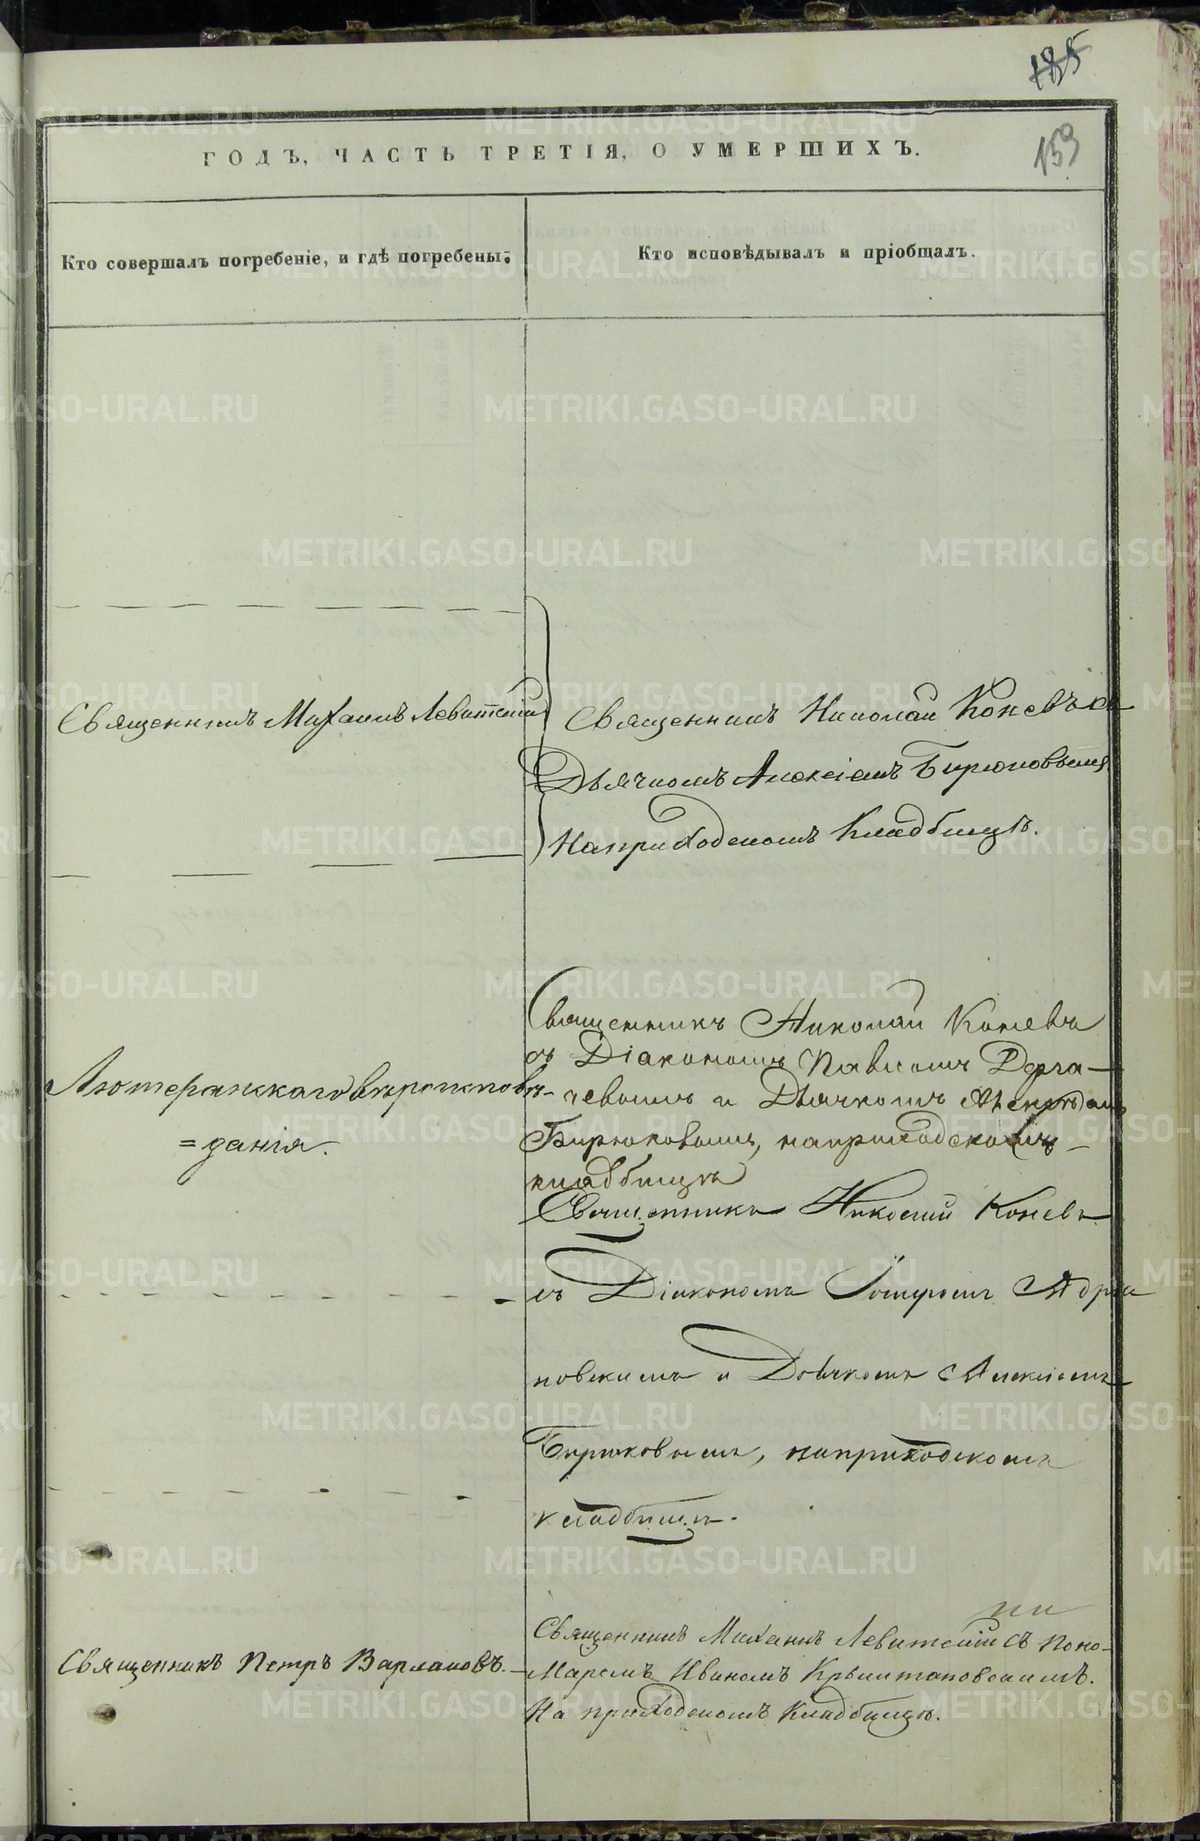 185
159
ГОДЪ, ЧАСТЬ ТРЕТІЯ, О УМЕРШИХЪ.
Кто совершалъ погребеніе, и гдѣ погребены:
Кто исповѣдывалъ и пріобщалъ.
Священникъ Михаилъ Левитскій
Священникъ Николай Коневъ съ
Дьячкомъ Алексіемъ Бирюковымъ
На приходскомъ Кладбищѣ.
Лютеранскаго вѣроисповѣ-
=данія.
Священникъ Николай Коневъ
съ Діакономъ Павломъ Дерга-
чевымъ и Дьячкомъ
Бирюковымъ, на приходскомъ
кладбищѣ
Священникъ Николай Коневъ
съ Діакономъ Петромъ Адріа
новскимъ и Дьячкомъ Алексіемъ
Бирюковымъ, на приходскомъ
кладбищѣ.
Священникъ Петръ Варлаковъ.
Священникъ Михаилъ Левитскій съ Поно-
маремъ Иваномъ
На приходскомъ Кладбищѣ.
METRIKI.GASO-URAL.RU